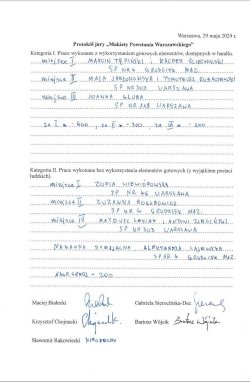 Warszawa, 29 maja 2024 r.
Protokół jury „Makiety Powstania Warszawskiego”
Kategoria I. Prace wykonane z wykorzystaniem elementów gotowych, dostępnych w handlu.
MIEJSCE I MARCIN TĘPIŃSKI I KACPER
SP NR 4 GRODZISK MAZ.
MIEJSCE II MAJA JABŁONOWSKA I
SP NR 303 WARSZAWA
MIEJSCE III JOANNA GLUBA
SP NR 108 WARSZAWA
za I m. 400 za II m - 300 za III m - 200
Kategoria II. Prace wykonane bez wykorzystania elementów gotowych (z wyjątkiem postaci
ludzkich).
MIEJSCE I ZOFIA NIEWIADOWSKA
SP NR 46 WARSZAWA
MIEJSCE II ZUZANNA
SP NR 4 GRODZISK MAZ.
MIEJSCE III MATEUSZ I ANTONI
SP NR 303 WARSZAWA
NAGRODA SPECJALNA ALEKSANDRA
SP NR 4 GRODZISK MAZ.
200
Maciej Białecki
Gabriela Sierocińska-Dec
Krzysztof Chojnacki
Bartosz Wójcik
Sławomir Rakowiecki NIEOBECNY